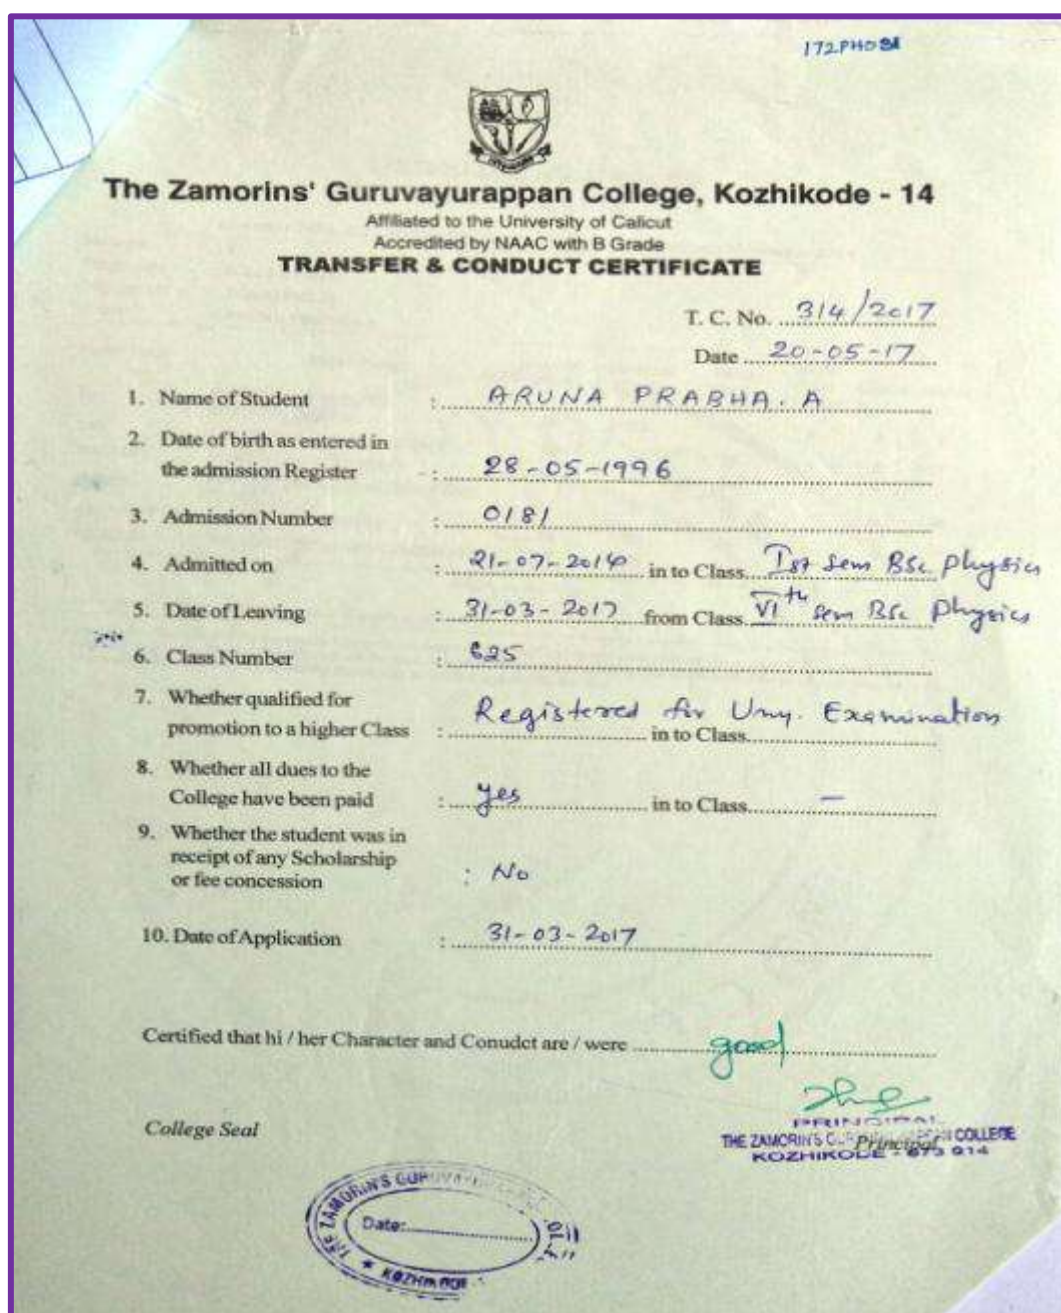 172PH031
The Zamorins' Guruvayurappan College, Kozhikode - 14
Affiliated to the University of Calicut
Accredited by NAAC with B Grade
TRANSFER & CONDUCT CERTIFICATE
T. C. No. 314/2017
Date 20-05-17
1. Name of Student : ARUNA PRABHA. A
2. Date of birth as entered in
the admission Register : 28-05-1996
3. Admission Number : 0181
4. Admitted on : 21-07-2014 in to Class Ist Sem BSc Physics
5. Date of Leaving : 31-03-2017 from Class VIth Sem BSc Physics
6. Class Number : 625
7. Whether qualified for
promotion to a higher Class : Registered for Uny. Examination in to Class
8. Whether all dues to the
College have been paid : yes in to Class —
9. Whether the student was in
receipt of any Scholarship
or fee concession : No
10. Date of Application : 31-03-2017
Certified that hi / her Character and Conudct are / were good
College Seal
PRINCIPAL
Principal
THE ZAMORIN'S COLLEGE
KOZHIKODE - 673 014
THE ZAMORIN'S
Date:
KOZHIKODE